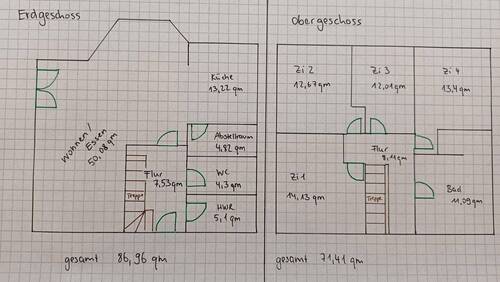 Erdgeschoss
Küche
13,22 qm
Wohnen/
Essen
50,08 qm
Abstellraum
4,82 qm
Flur
7,53 qm
WC
4,3 qm
Treppe
HWR
5,1 qm
gesamt 86,96 qm
Obergeschoss
Zi 2
12,67 qm
Zi 3
12,01 qm
Zi 4
13,4 qm
Flur
8,11 qm
Zi 1
14,13 qm
Treppe
Bad
11,09 qm
gesamt 71,41 qm